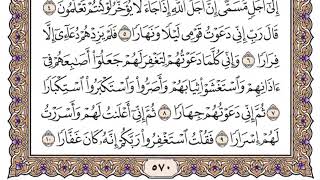 إِلَىٰٓ أَجَلٍ مُّسَمًّى إِنَّ أَجَلَ ٱللَّهِ إِذَا جَآءَ لَا يُؤَخَّرُ لَوْ كُنتُمْ تَعْلَمُونَ ٤
قَالَ رَبِّ إِنِّي دَعَوْتُ قَوْمِي لَيْلًا وَنَهَارًا ٥ فَلَمْ يَزِدْهُمْ دُعَآءِيٓ إِلَّا
فِرَارًا ٦ وَإِنِّي كُلَّمَا دَعَوْتُهُمْ لِتَغْفِرَ لَهُمْ جَعَلُوٓا۟ أَصَٰبِعَهُمْ فِيٓ
ءَاذَانِهِمْ وَٱسْتَغْشَوْا۟ ثِيَابَهُمْ وَأَصَرُّوا۟ وَٱسْتَكْبَرُوا۟ ٱسْتِكْبَارًا
٧ ثُمَّ إِنِّي دَعَوْتُهُمْ جِهَارًا ٨ ثُمَّ إِنِّيٓ أَعْلَنتُ لَهُمْ وَأَسْرَرْتُ
لَهُمْ إِسْرَارًا ٩ فَقُلْتُ ٱسْتَغْفِرُوا۟ رَبَّكُمْ إِنَّهُۥ كَانَ غَفَّارًا ١٠
٥٧٠